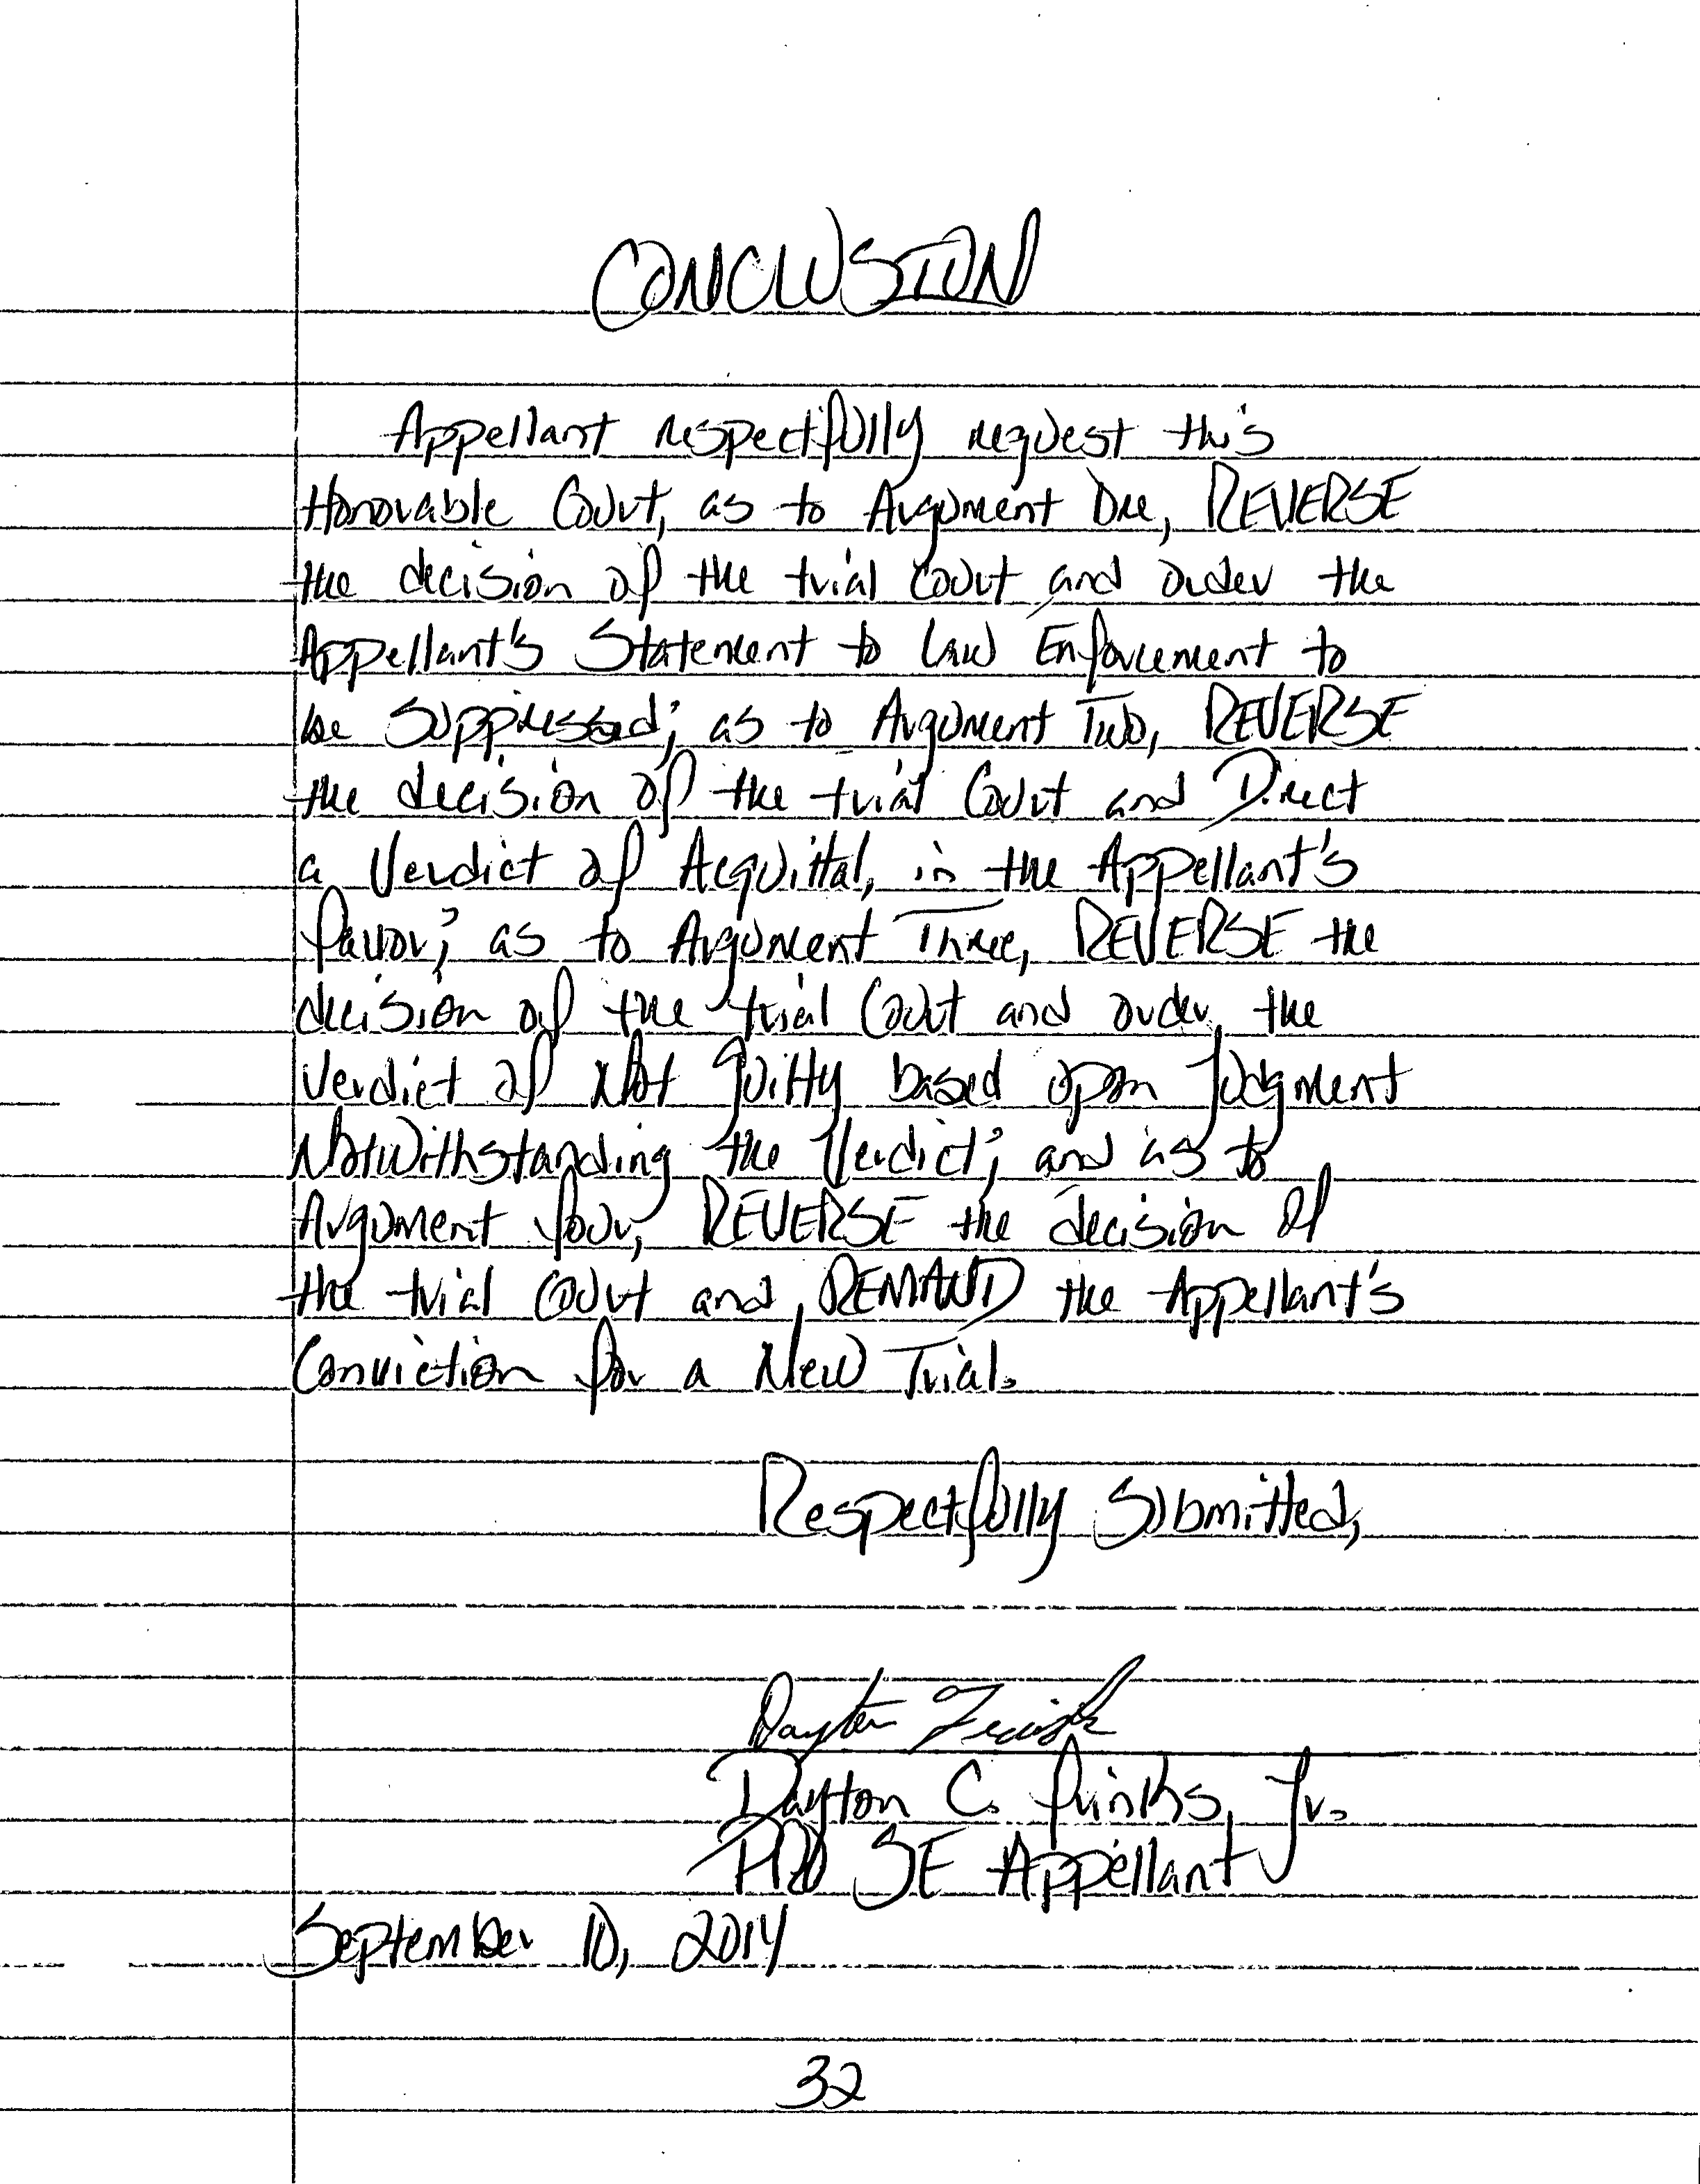 CONCLUSION
Appellant respectfully request this
Honorable Court, as to Argument One, REVERSE
the decision of the trial court and order the
Appellant's Statement to Law Enforcement to
be suppressed; as to Argument Two, REVERSE
the decision of the trial Court and Direct
a Verdict of Acquittal, in the Appellant's
favor; as to Argument Three, REVERSE the
decision of the trial Court and order the
Verdict of Not Guilty based upon Judgment
Notwithstanding the Verdict; and as to
Argument four, REVERSE the decision of
the trial Court and REMAND the Appellant's
Conviction for a New Trial.
Respectfully Submitted,
Dayton
Dayton C. Frinks, Jr.
PRO SE Appellant
September 10, 2014
32